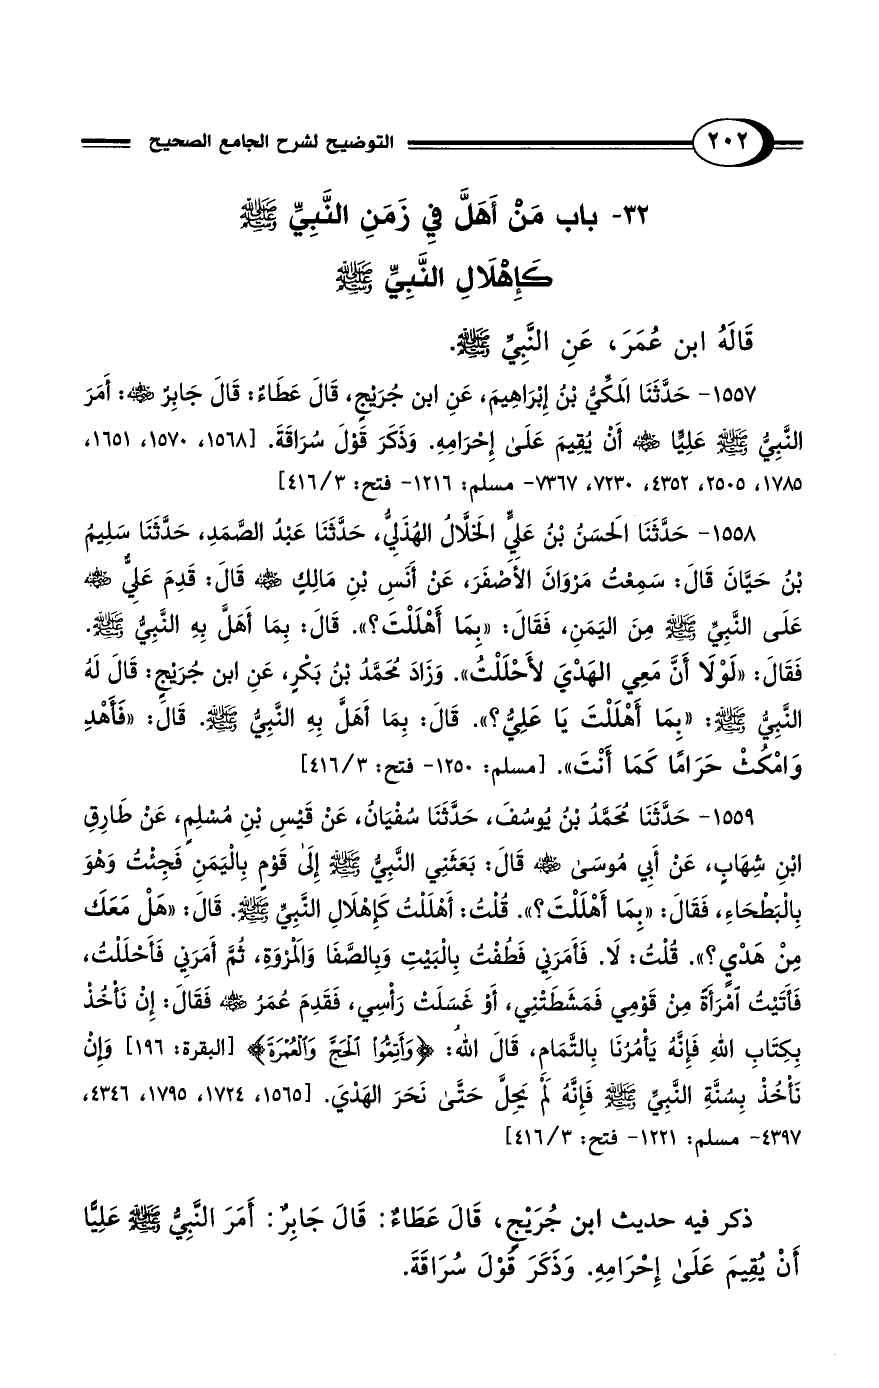 ٢٠٢ التوضيح لشرح الجامع الصحيح
٣٢- باب مَنْ أَهَلَّ فِي زَمَنِ النَّبِيِّ ﷺ
كَإِهْلَالِ النَّبِيِّ ﷺ
قَالَهُ ابن عُمَرَ، عَنِ النَّبِيِّ ﷺ.
١٥٥٧- حَدَّثَنَا المَكِّيُّ بْنُ إِبْرَاهِيمَ، عَنِ ابن جُرَيْجٍ، قَالَ عَطَاءٌ: قَالَ جَابِرٌ ﵁: أَمَرَ
النَّبِيُّ ﷺ عَلِيًّا ﵁ أَنْ يُقِيمَ عَلَىٰ إِحْرَامِهِ. وَذَكَرَ قَوْلَ سُرَاقَةَ. [١٥٦٨، ١٥٧٠، ١٦٥١،
١٧٨٥، ٢٥٠٥، ٤٣٥٢، ٧٢٣٠، ٧٣٦٧- مسلم: ١٢١٦- فتح: ٣/ ٤١٦]
١٥٥٨- حَدَّثَنَا الَحسَنُ بْنُ عَلِيٍّ الَخلَّالُ الهُذَلِيُّ، حَدَّثَنَا عَبْدُ الصَّمَدِ، حَدَّثَنَا سَلِيمُ
بْنُ حَيَّانَ قَالَ: سَمِعْتُ مَرْوَانَ الأَصْفَرَ، عَنْ أَنَسِ بْنِ مَالِكٍ ﵁ قَالَ: قَدِمَ عَلِيٌّ ﵁
عَلَى النَّبِيِّ ﷺ مِنَ اليَمَنِ، فَقَالَ: «بِمَا أَهْلَلْتَ؟». قَالَ: بِمَا أَهَلَّ بِهِ النَّبِيُّ ﷺ.
فَقَالَ: «لَوْلَا أَنَّ مَعِي الهَدْيَ لأَحْلَلْتُ». وَزَادَ مُحَمَّدُ بْنُ بَكْرٍ، عَنِ ابن جُرَيْجٍ: قَالَ لَهُ
النَّبِيُّ ﷺ: «بِمَا أَهْلَلْتَ يَا عَلِيُّ؟». قَالَ: بِمَا أَهَلَّ بِهِ النَّبِيُّ ﷺ. قَالَ: «فَأَهْدِ
وَامْكُثْ حَرَامًا كَمَا أَنْتَ». [مسلم: ١٢٥٠- فتح: ٣/ ٤١٦]
١٥٥٩- حَدَّثَنَا مُحَمَّدُ بْنُ يُوسُفَ، حَدَّثَنَا سُفْيَانُ، عَنْ قَيْسِ بْنِ مُسْلِمٍ، عَنْ طَارِقِ
ابْنِ شِهَابٍ، عَنْ أَبِي مُوسَىٰ ﵁ قَالَ: بَعَثَنِي النَّبِيُّ ﷺ إِلَىٰ قَوْمٍ بِالْيَمَنِ فَجِئْتُ وَهْوَ
بِالْبَطْحَاءِ، فَقَالَ: «بِمَا أَهْلَلْتَ؟». قُلْتُ: أَهْلَلْتُ كَإِهْلَالِ النَّبِيِّ ﷺ. قَالَ: «هَلْ مَعَكَ
مِنْ هَدْيٍ؟». قُلْتُ: لَا. فَأَمَرَنِي فَطُفْتُ بِالْبَيْتِ وَبِالصَّفَا وَالْمَرْوَةِ، ثُمَّ أَمَرَنِي فَأَحْلَلْتُ،
فَأَتَيْتُ ٱمْرَأَةً مِنْ قَوْمِي فَمَشَطَتْنِي، أَوْ غَسَلَتْ رَأْسِي، فَقَدِمَ عُمَرُ ﵁ فَقَالَ: إِنْ نَأْخُذْ
بِكِتَابِ اللهِ فَإِنَّهُ يَأْمُرُنَا بِالتَّمَامِ، قَالَ اللهُ: ﴿وَأَتِمُّوا۟ ٱلْحَجَّ وَٱلْعُمْرَةَ﴾ [البقرة: ١٩٦] وَإِنْ
نَأْخُذْ بِسُنَّةِ النَّبِيِّ ﷺ فَإِنَّهُ لَمْ يَحِلَّ حَتَّىٰ نَحَرَ الهَدْيَ. [١٥٦٥، ١٧٢٤، ١٧٩٥، ٤٣٤٦،
٤٣٩٧- مسلم: ١٢٢١- فتح: ٣/ ٤١٦]
ذكر فيه حديث ابن جُرَيْجٍ، قَالَ عَطَاءٌ: قَالَ جَابِرٌ: أَمَرَ النَّبِيُّ ﷺ عَلِيًّا
أَنْ يُقِيمَ عَلَىٰ إِحْرَامِهِ. وَذَكَرَ قَوْلَ سُرَاقَةَ.